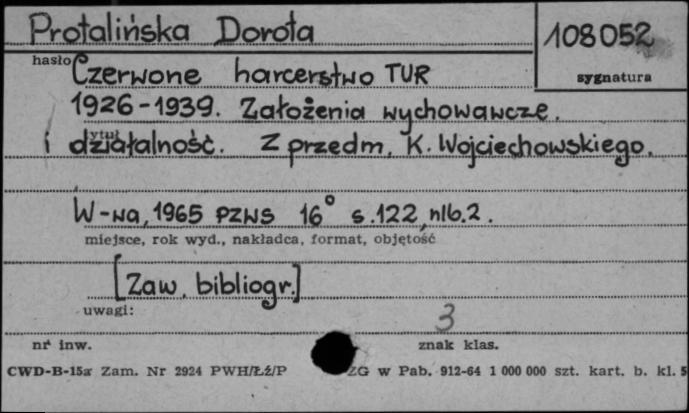 Protalińska Dorota
108052
hasło
sygnatura
Czerwone harcerstwo TUR
1926-1939. Założenia wychowawcze.
tytuł
i działalność. Z przedm. K. Wojciechowskiego.
W-wa, 1965 PZWS 16° s.122, nlb.2.
miejsce, rok wyd., nakładca, format, objętość
[Zaw. bibliogr.]
uwagi:
3
nr inw.
znak klas.
CWD-B-15a Zam. Nr 2924 PWH/Łź/P ZG w Pab. 912-64 1 000 000 szt. kart. b. kl. 5